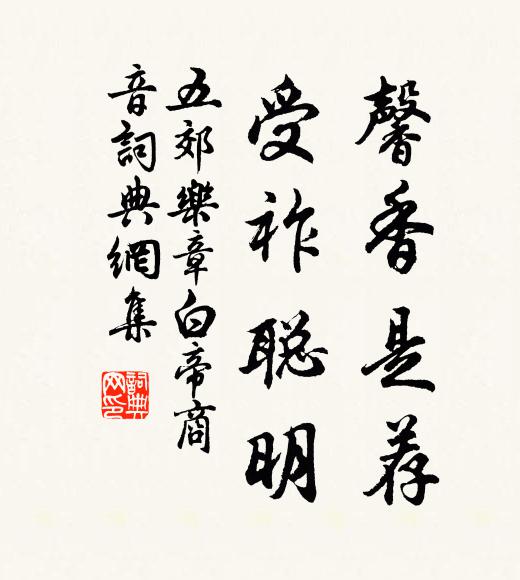 馨香是荐
受祚聪明
五郊樂章白帝商
音詞典網集
詞典
网印